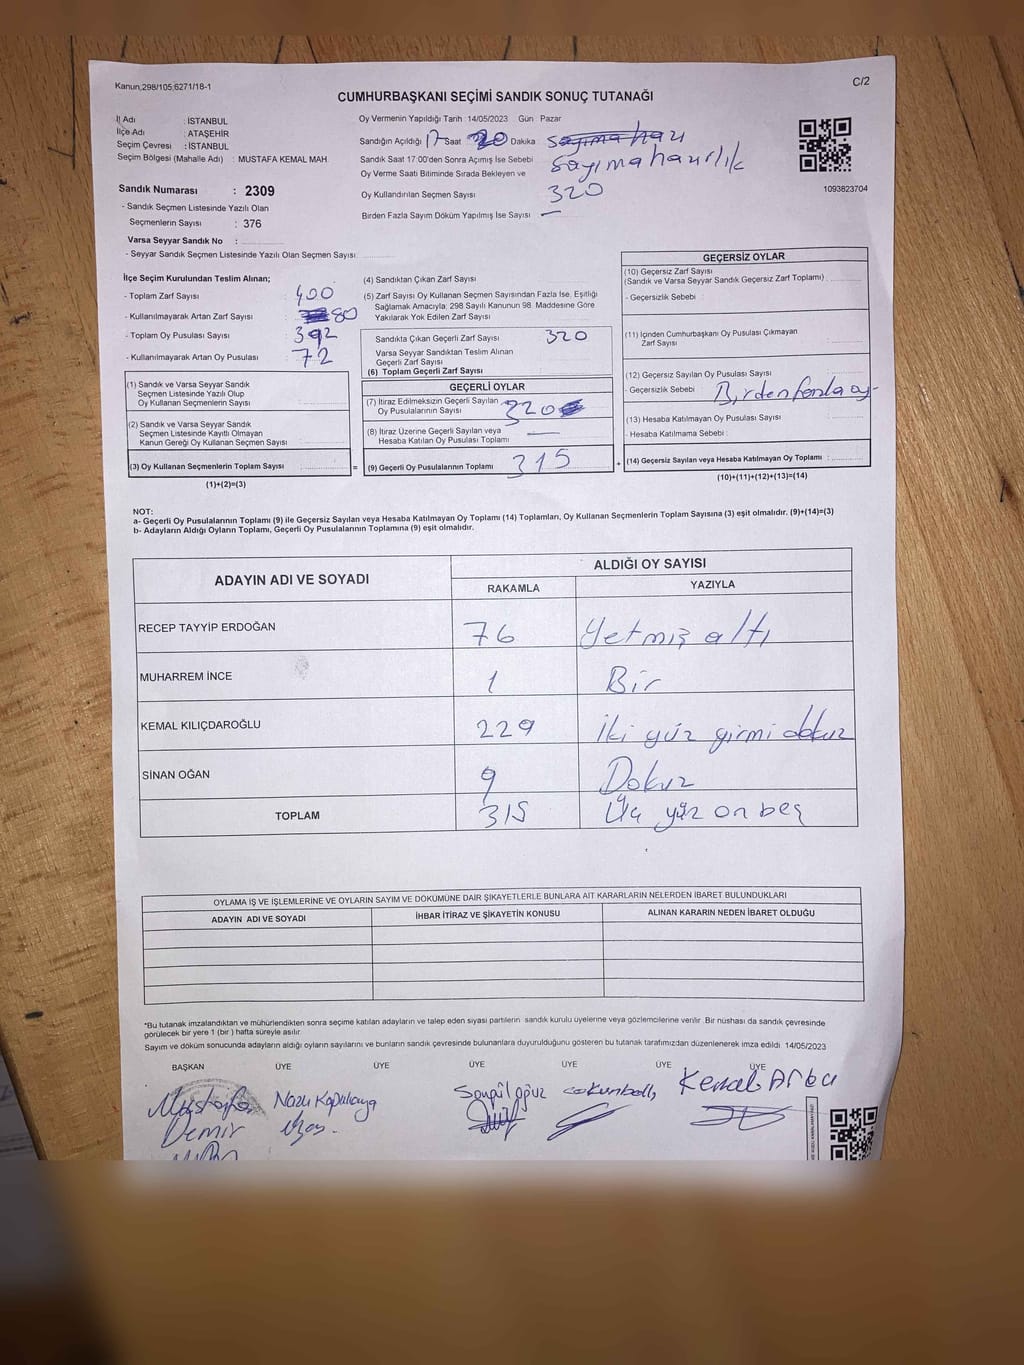 Kanun,298/105,6271/18-1
C/2
CUMHURBAŞKANI SEÇİMİ SANDIK SONUÇ TUTANAĞI
İl Adı : İSTANBUL
İlçe Adı : ATAŞEHİR
Seçim Çevresi : İSTANBUL
Seçim Bölgesi (Mahalle Adı) : MUSTAFA KEMAL MAH.
Sandık Numarası : 2309
- Sandık Seçmen Listesinde Yazılı Olan
Seçmenlerin Sayısı : 376
Varsa Seyyar Sandık No :
- Seyyar Sandık Seçmen Listesinde Yazılı Olan Seçmen Sayısı:
Oy Vermenin Yapıldığı Tarih :14/05/2023 Gün Pazar
Sandığın Açıldığı 17 Saat 20 Dakika
Sandık Saat 17:00'den Sonra Açımış İse Sebebi Sayıma hazırlık
Oy Verme Saati Bitiminde Sırada Bekleyen ve
Oy Kullandırılan Seçmen Sayısı 320
Birden Fazla Sayım Döküm Yapılmış İse Sayısı —
1093823704
İlçe Seçim Kurulundan Teslim Alınan;
- Toplam Zarf Sayısı : 400
- Kullanılmayarak Artan Zarf Sayısı : 80
- Toplam Oy Pusulası Sayısı : 392
- Kullanılmayarak Artan Oy Pusulası : 72
(1) Sandık ve Varsa Seyyar Sandık
Seçmen Listesinde Yazılı Olup
Oy Kullanan Seçmenlerin Sayısı
(2) Sandık ve Varsa Seyyar Sandık
Seçmen Listesinde Kayıtlı Olmayan
Kanun Gereği Oy Kullanan Seçmen Sayısı
(3) Oy Kullanan Seçmenlerin Toplam Sayısı =
(1)+(2)=(3)
(4) Sandıktan Çıkan Zarf Sayısı
(5) Zarf Sayısı Oy Kullanan Seçmen Sayısından Fazla İse, Eşitliği
Sağlamak Amacıyla; 298 Sayılı Kanunun 98. Maddesine Göre
Yakılarak Yok Edilen Zarf Sayısı
Sandıkta Çıkan Geçerli Zarf Sayısı 320
Varsa Seyyar Sandıktan Teslim Alınan
Geçerli Zarf Sayısı
(6) Toplam Geçerli Zarf Sayısı
GEÇERLİ OYLAR
(7) İtiraz Edilmeksizin Geçerli Sayılan
Oy Pusulalarının Sayısı 320
(8) İtiraz Üzerine Geçerli Sayılan veya
Hesaba Katılan Oy Pusulası Toplamı —
(9) Geçerli Oy Pusulalarının Toplamı 315 +
GEÇERSİZ OYLAR
(10) Geçersiz Zarf Sayısı
(Sandık ve Varsa Seyyar Sandık Geçersiz Zarf Toplamı)
- Geçersizlik Sebebi :
(11) İçinden Cumhurbaşkanı Oy Pusulası Çıkmayan
Zarf Sayısı
(12) Geçersiz Sayılan Oy Pusulası Sayısı
- Geçersizlik Sebebi : Birden fazla oy
(13) Hesaba Katılmayan Oy Pusulası Sayısı
- Hesaba Katılmama Sebebi :
(14) Geçersiz Sayılan veya Hesaba Katılmayan Oy Toplamı :
(10)+(11)+(12)+(13)=(14)
NOT:
a- Geçerli Oy Pusulalarının Toplamı (9) ile Geçersiz Sayılan veya Hesaba Katılmayan Oy Toplamı (14) Toplamları, Oy Kullanan Seçmenlerin Toplam Sayısına (3) eşit olmalıdır. (9)+(14)=(3)
b- Adayların Aldığı Oyların Toplamı, Geçerli Oy Pusulalarının Toplamına (9) eşit olmalıdır.
ADAYIN ADI VE SOYADI
ALDIĞI OY SAYISI
RAKAMLA YAZIYLA
RECEP TAYYİP ERDOĞAN 76 Yetmiş altı
MUHARREM İNCE 1 Bir
KEMAL KILIÇDAROĞLU 229 İki yüz girmi dokuz
SİNAN OĞAN 9 Dokuz
TOPLAM 315 Üç yüz on beş
OYLAMA İŞ VE İŞLEMLERİNE VE OYLARIN SAYIM VE DÖKÜMÜNE DAİR ŞİKAYETLERLE BUNLARA AİT KARARLARIN NELERDEN İBARET BULUNDUKLARI
ADAYIN ADI VE SOYADI İHBAR İTİRAZ VE ŞİKAYETİN KONUSU ALINAN KARARIN NEDEN İBARET OLDUĞU
*Bu tutanak imzalandıktan ve mühürlendikten sonra seçime katılan adayların ve talep eden siyasi partilerin sandık kurulu üyelerine veya gözlemcilerine verilir. Bir nüshası da sandık çevresinde
görülecek bir yere 1 (bir) hafta süreyle asılır.
Sayım ve döküm sonucunda adayların aldığı oyların sayılarını ve bunların sandık çevresinde bulunanlara duyurulduğunu gösteren bu tutanak tarafımızdan düzenlenerek imza edildi. 14/05/2023
BAŞKAN ÜYE ÜYE ÜYE ÜYE ÜYE
Mustafa
Demir
Kemal Arba